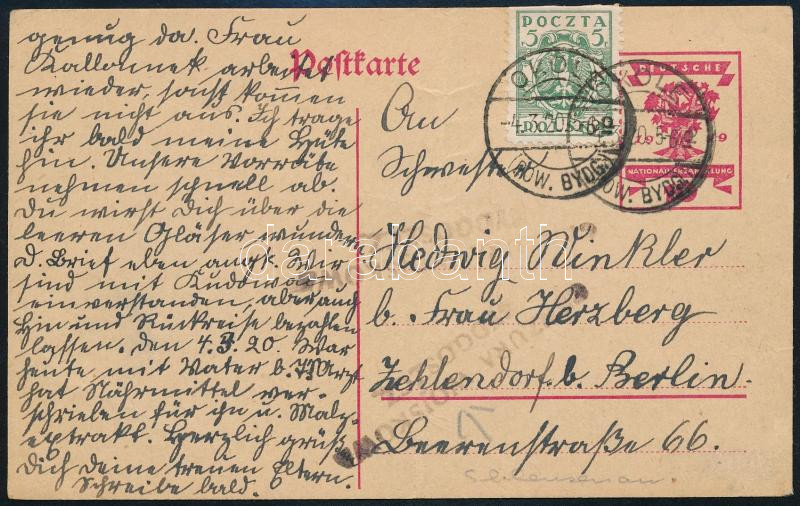 genug da. Frau
Kallomek arbeitet
wieder, sonst kommen
sie nicht aus. Ich trage
ihr bald meine Hüte
hin. Unsere Vorräte
nehmen schnell ab.
Du wirst Dich über die
leeren Gläser wundern.
D. Brief eben angk. Wir
sind mit Kudowa
einverstanden, aber auch
Hin und Rückreise bezahlen
lassen. den 4.3.20. War
heute mit Vater b. Arzt
hat Nährmittel ver-
schrieben für ihn u. Malz-
extrakt. Herzlich grüßt
Dich deine treuen Eltern.
Schreibe bald.
Postkarte
POCZTA
5 5
DEUTSCHE
19 19
NATIONALVERSAMMLUNG
-4.3.20
(POW. BYDG
(POW. BYDG
An
Schwester
Hedwig Winkler
b. Frau Herzberg
Zehlendorf b. Berlin
Beerenstraße 66.
darabanth